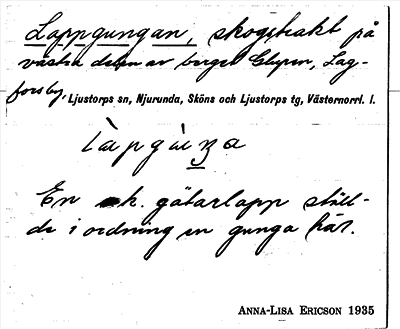 Lappgungan, skogstrakt på
västra delen av berget Clupen, Lag-
forsby, Ljustorps sn, Njurunda, Sköns och Ljustorps tg, Västernorrl. l.
En s.k. gåtarlapp ställ-
de i ordning en gunga här.
ANNA-LISA ERICSON 1935